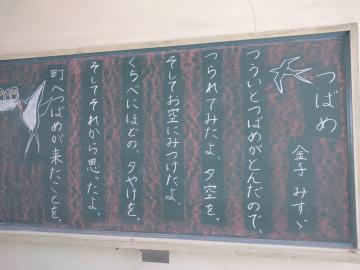 つばめ
金子 みすゞ
つういとつばめがとんだので、
つられてみたよ、夕空を。
そしてお空にみつけたよ、
くちべにほどの、夕やけを。
そしてそれから思ったよ、
町へつばめが来たことを。